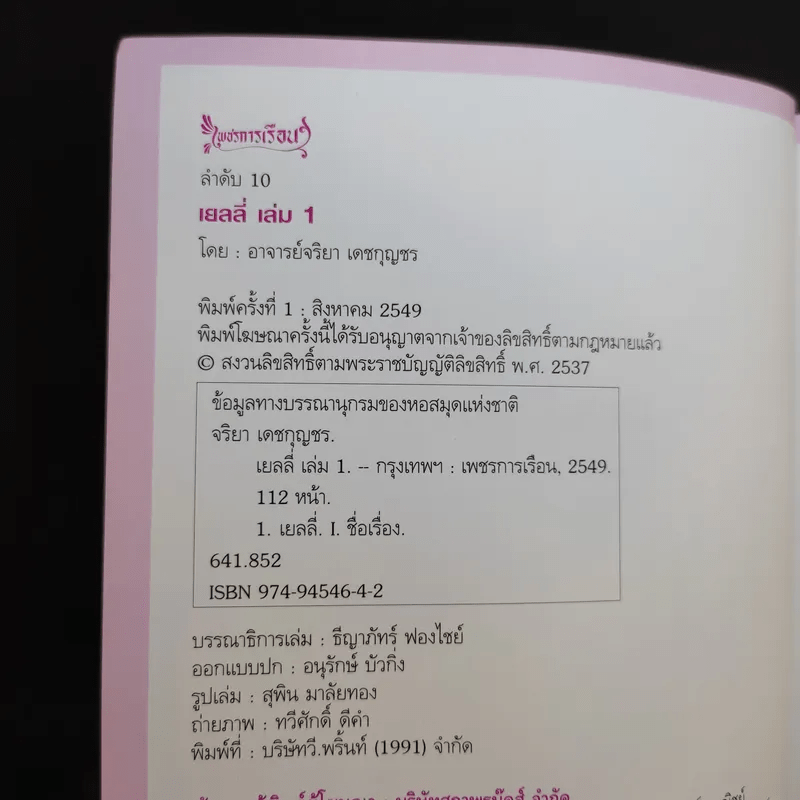 เพชรการเรือน
ลำดับ 10
เยลลี่ เล่ม 1
โดย : อาจารย์จริยา เดชกุญชร
พิมพ์ครั้งที่ 1 : สิงหาคม 2549
พิมพ์โฆษณาครั้งนี้ได้รับอนุญาตจากเจ้าของลิขสิทธิ์ตามกฎหมายแล้ว
© สงวนลิขสิทธิ์ตามพระราชบัญญัติลิขสิทธิ์ พ.ศ. 2537
ข้อมูลทางบรรณานุกรมของหอสมุดแห่งชาติ
จริยา เดชกุญชร.
เยลลี่ เล่ม 1. -- กรุงเทพฯ : เพชรการเรือน, 2549.
112 หน้า.
1. เยลลี่. I. ชื่อเรื่อง.
641.852
ISBN 974-94546-4-2
บรรณาธิการเล่ม : ธีญาภัทร์ ฟองไชย์
ออกแบบปก : อนุรักษ์ บัวกิ่ง
รูปเล่ม : สุพิน มาลัยทอง
ถ่ายภาพ : ทวีศักดิ์ ดีคำ
พิมพ์ที่ : บริษัทวี.พริ้นท์ (1991) จำกัด